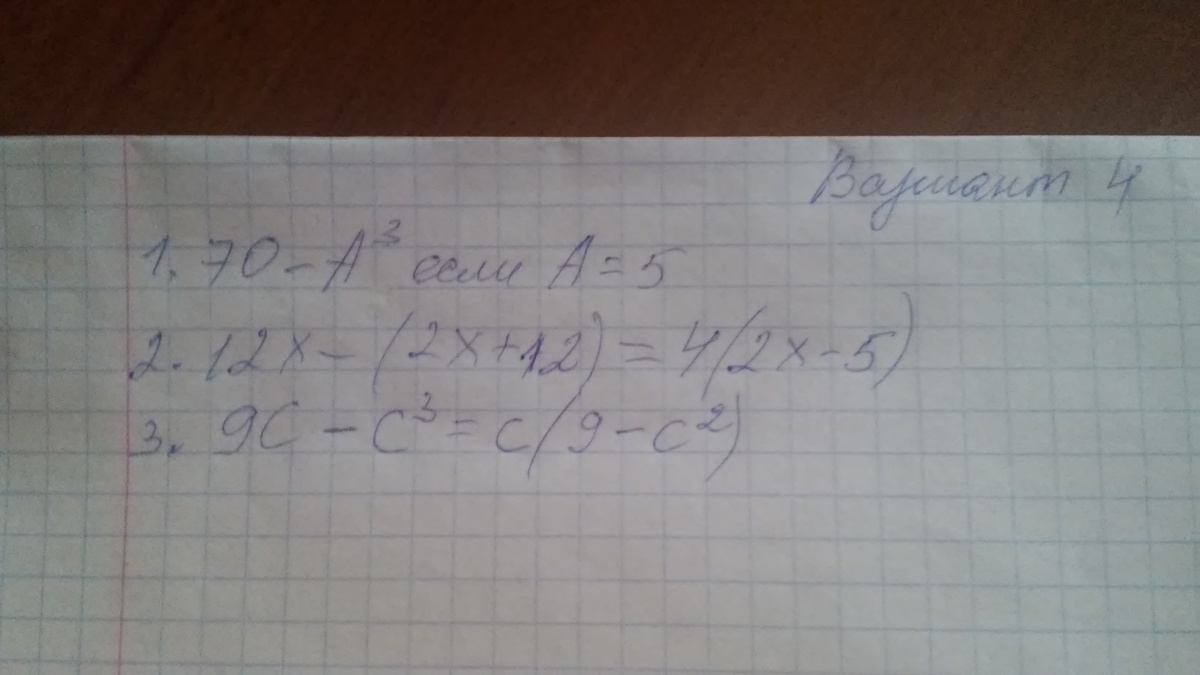 Вариант 4
1. 70 - A³ если A = 5
2. 12x - (2x + 12) = 4(2x - 5)
3. 9c - c³ = c(9 - c²)